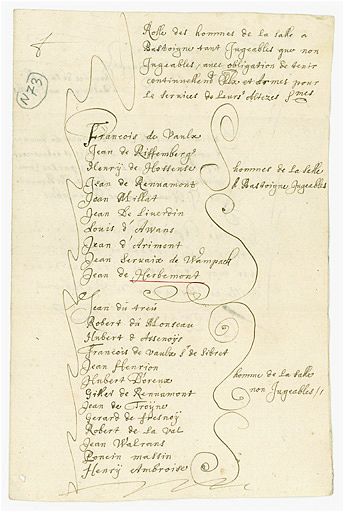 Rolle des hommes de la salle a
Bastoigne tant Jugeables que non
Jugeables, avec obligation de tenir
continuellement et armes pour
le service de Leurs Altezes
N73
Francois de Vaulx
Jean de Riffemberg
Henrÿ de Hottense
Jean de Rennamont
Jean Millat
Jean De Liverdin
Louis d'Awans
Jean d'Arimont
Jean Servaix de Wampach
Jean de Herbemont
hommes de la salle
d Bastoigne Jugeables
Jean du treu
Robert du Monseau
Hubert d Assenoÿs
Francois de vaulx Sr de Sibret
Jean Henrion
Hubert D'oreux
Gilles de Rennamont
Jean de Troÿne
Gerard de fresnoÿ
Robert de La Val
Jean Walrans
Poncin massin
Henrÿ Ambroise
homme de la salle
non Jugeables